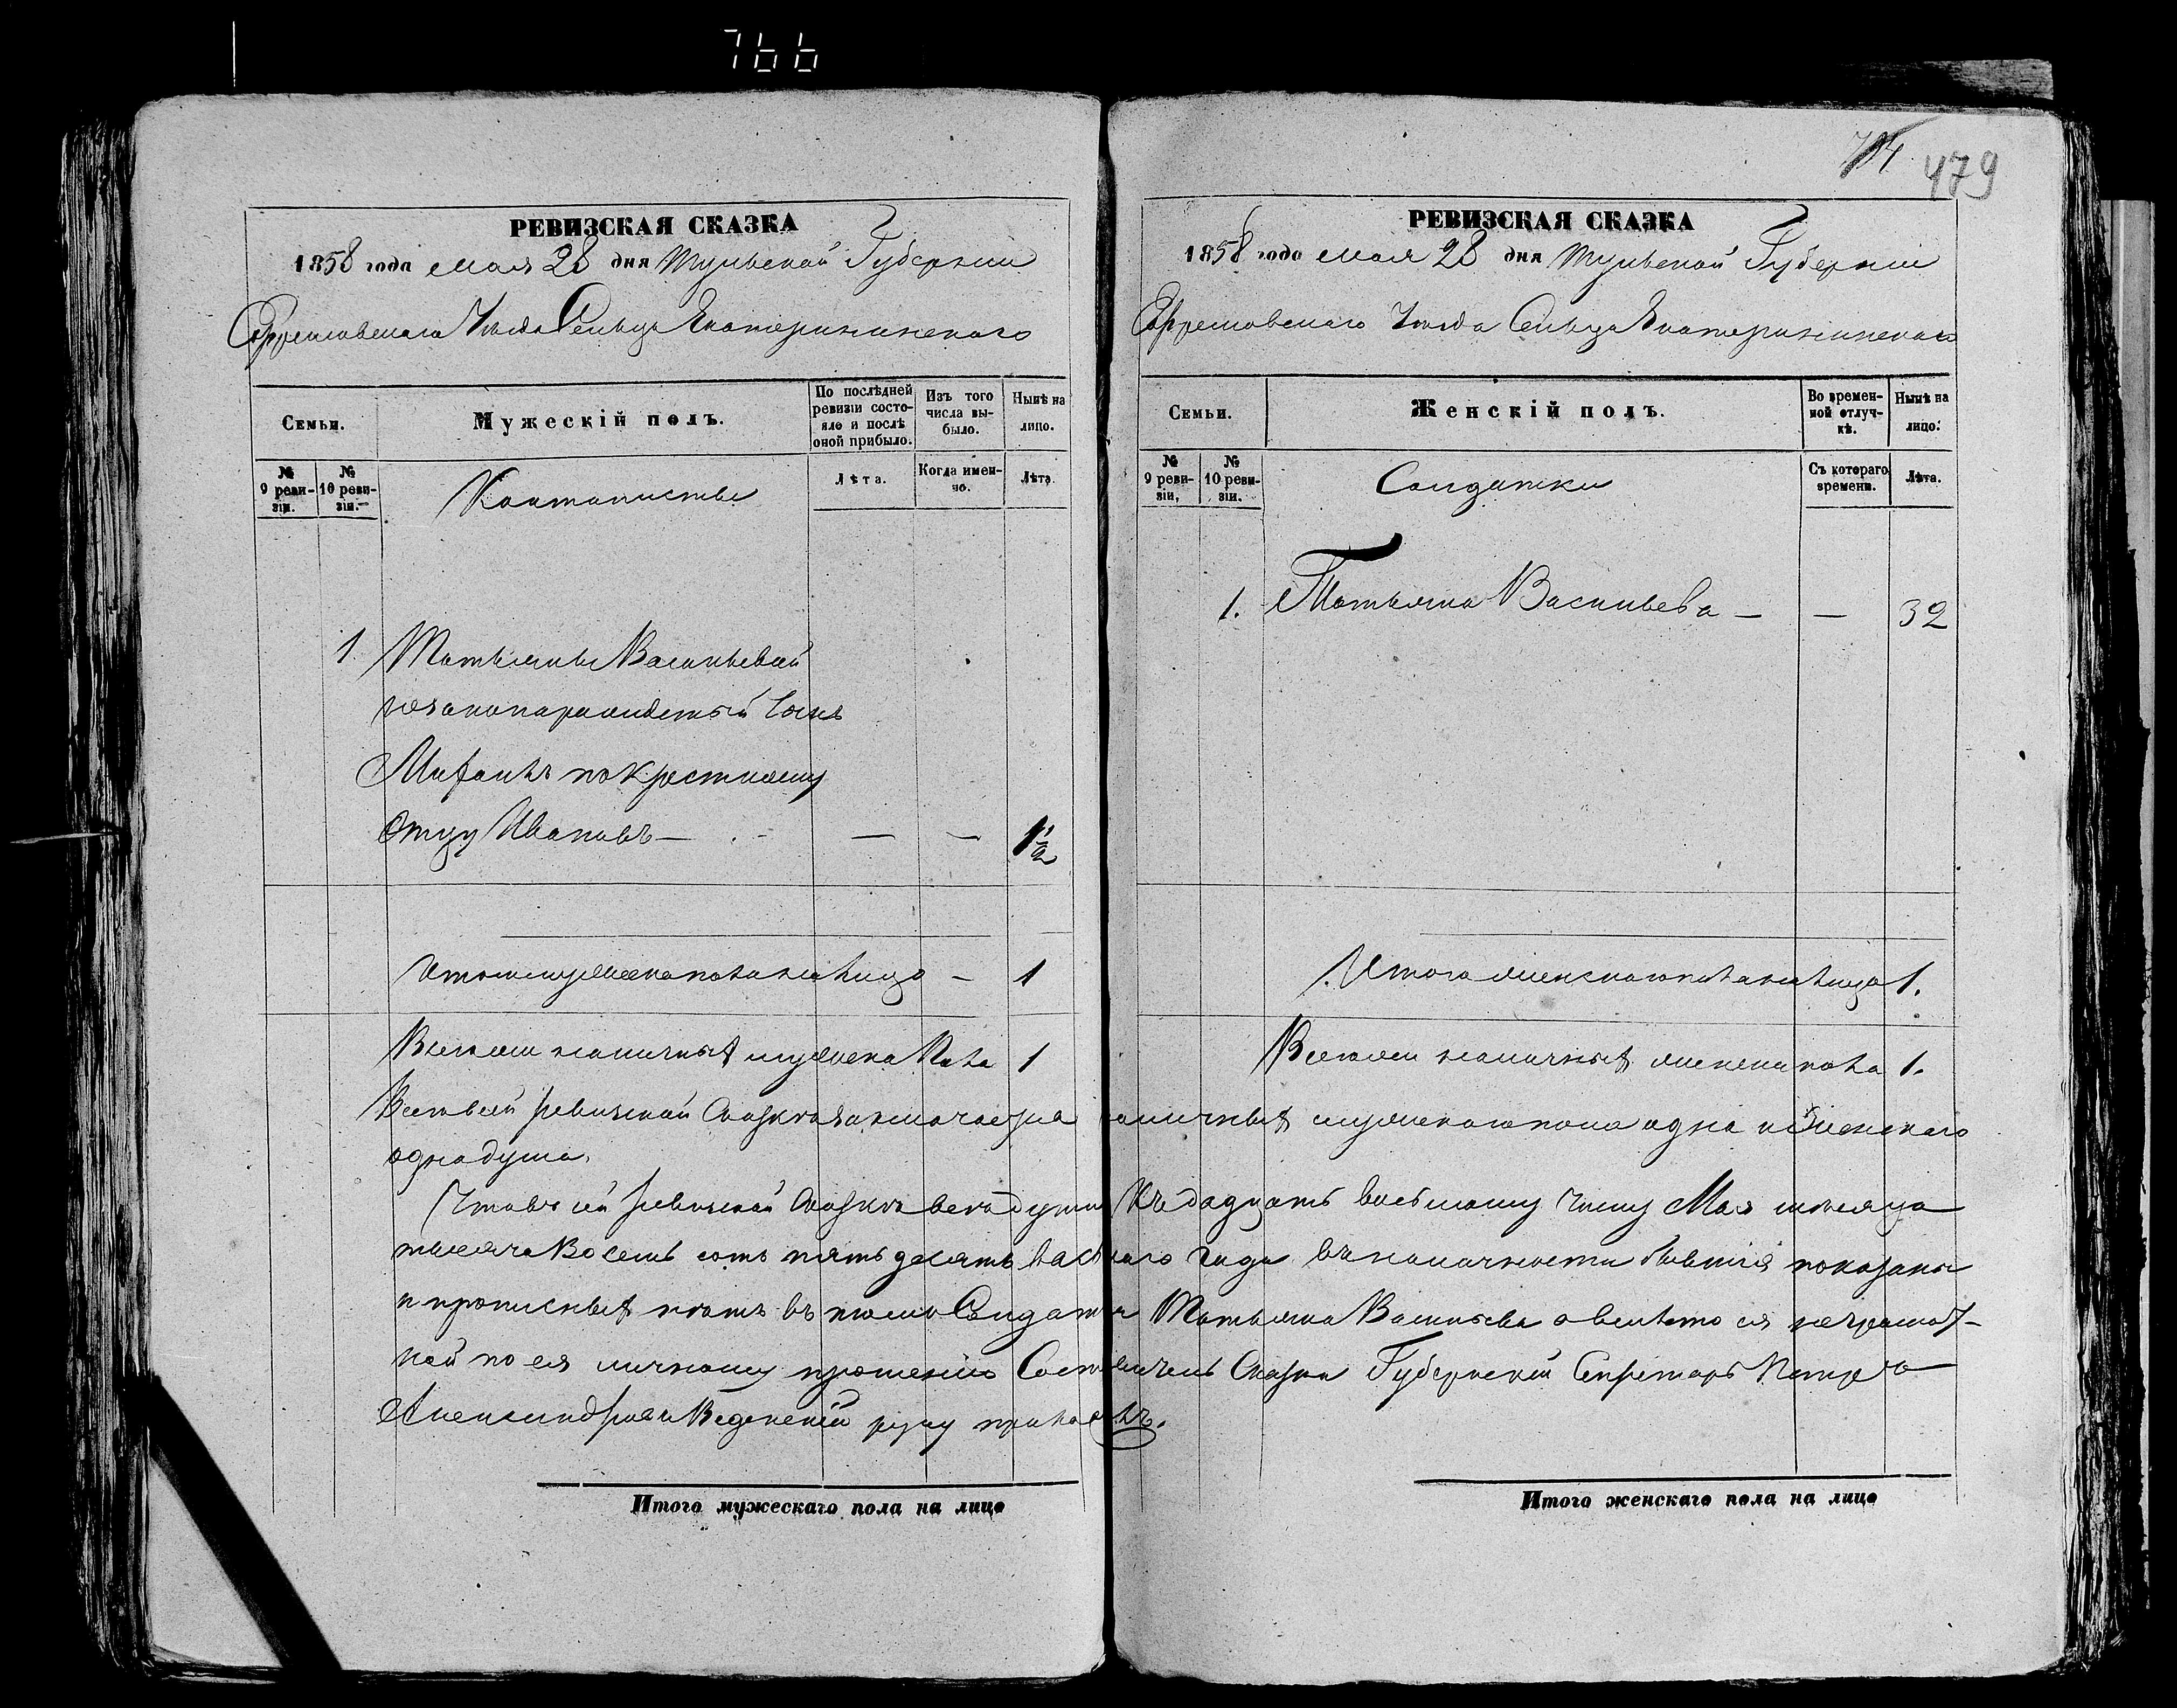 766
РЕВИЗСКАЯ СКАЗКА
1858 года мая 28 дня Тульской Губернии
Ефремовскаго Уѣзда Сельца Екатерининскаго
Семьи.
Мужескій полъ.
По послѣдней ревизіи состояло и послѣ оной прибыло.
Изъ того числа выбыло.
Нынѣ на лицо.
№ 9 ревизіи.
№ 10 ревизіи.
Кантонисты
Лѣта.
Когда именно.
Лѣта.
1. Татьяны Васильевой
незаконнорожденный сынъ
по крестному
Отцу Ивановъ — — — 1 1/2
Итого мужеска пола на лицо — 1
Всего наличныхъ мужеска пола 1
Итого мужескаго пола на лицо
479
РЕВИЗСКАЯ СКАЗКА
1858 года мая 28 дня Тульской Губерніи
Ефремовскаго Уѣзда Сельца Екатерининскаго
Семьи.
Женскій полъ.
Во временной отлучкѣ.
Нынѣ на лицо.
№ 9 ревизіи.
№ 10 ревизіи.
Солдатки
Съ котораго времени.
Лѣта.
1. Татьяна Васильева — — 32
Итого женскаго пола на лицо 1.
Всего наличныхъ женска пола 1.
Всего въ сей ревизской Сказкѣ заключается наличныхъ мужескаго пола одна и женскаго
одна душа.
Что въ сей ревизской Сказкѣ всѣ души къ двадцать восьмому числу Мая мѣсяца
тысяча восемь сотъ пятьдесятъ восьмаго года въ наличности бывшія показаны
и прописныхъ нѣтъ въ томъ Солдатка Татьяна Васильева а вмѣсто ея неграмот-
ной по ея личному прошенію Сказки Губернскій Секретарь Петръ
Александровъ Введенскій руку приложилъ.
Итого женскаго пола на лицо